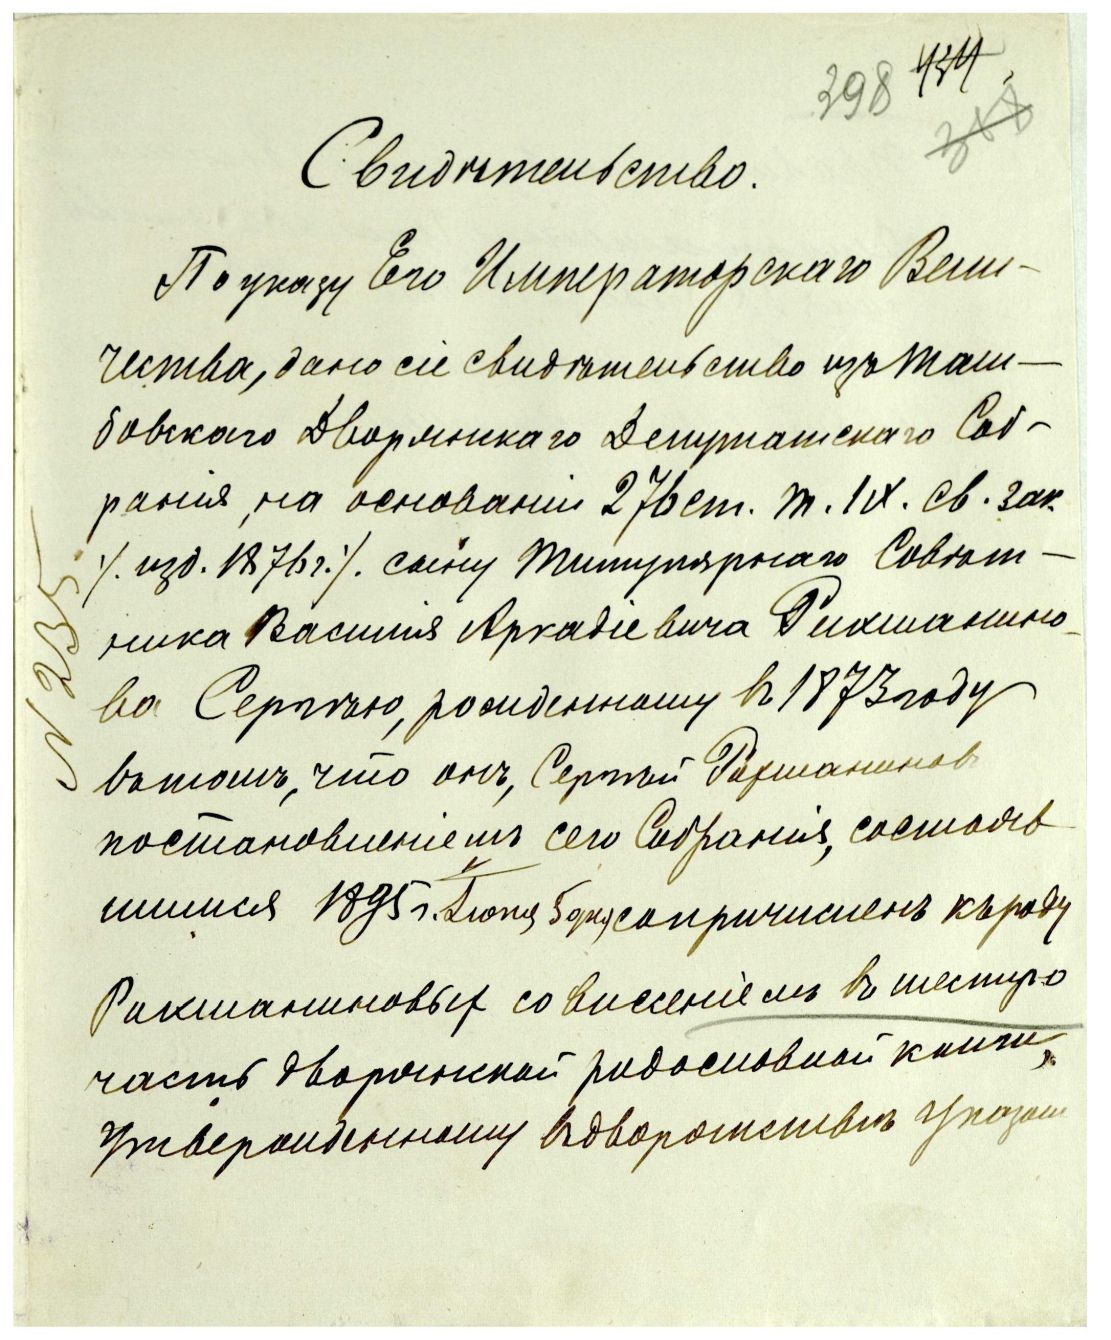 298 434
388
Свидѣтельство.
По указу Его Императорскаго Вели-
чества, дано сіе свидѣтельство изъ Там-
бовскаго Дворянскаго Депутатскаго Соб-
ранія, на основаніи 276 ст. т. IX. св. зак.
:/. изд. 1876 г. :/. сыну Титулярнаго Совѣт-
ника Василія Аркадіевича Рахманино-
ва Сергѣю, рожденному въ 1873 году
въ томъ, что онъ, Сергѣй Рахманиновъ
постановленіемъ сего Собранія, состояв-
шимся 1895 г. Іюня 5 дня сопричисленъ къ роду
Рахманиновыхъ со внесеніемъ въ шестую
часть дворянской родословной книги,
Утвержденному въ дворянствѣ Указом
N 235.